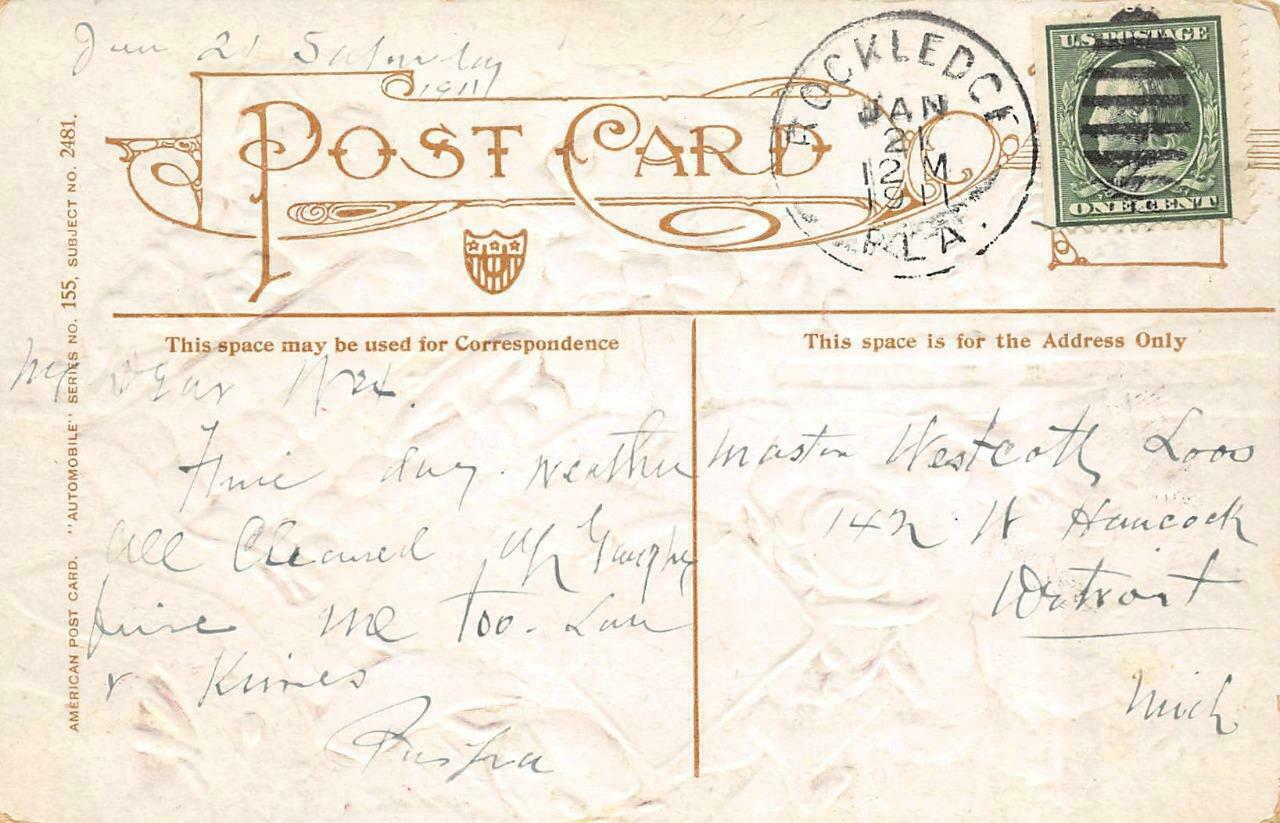 Jan 21 Saturday
1911
POST CARD
ROCKLEDGE
JAN
21
12 M
1911
FLA.
U.S. POSTAGE
ONE CENT
AMERICAN POST CARD. "AUTOMOBILE" SERIES NO. 155, SUBJECT NO. 2481.
This space may be used for Correspondence
My Dear
Fine day. weather
all Cleared up
fine me too. Love
& Kisses
This space is for the Address Only
Master Westcott Loos
142 W Hancock
Detroit
Mich